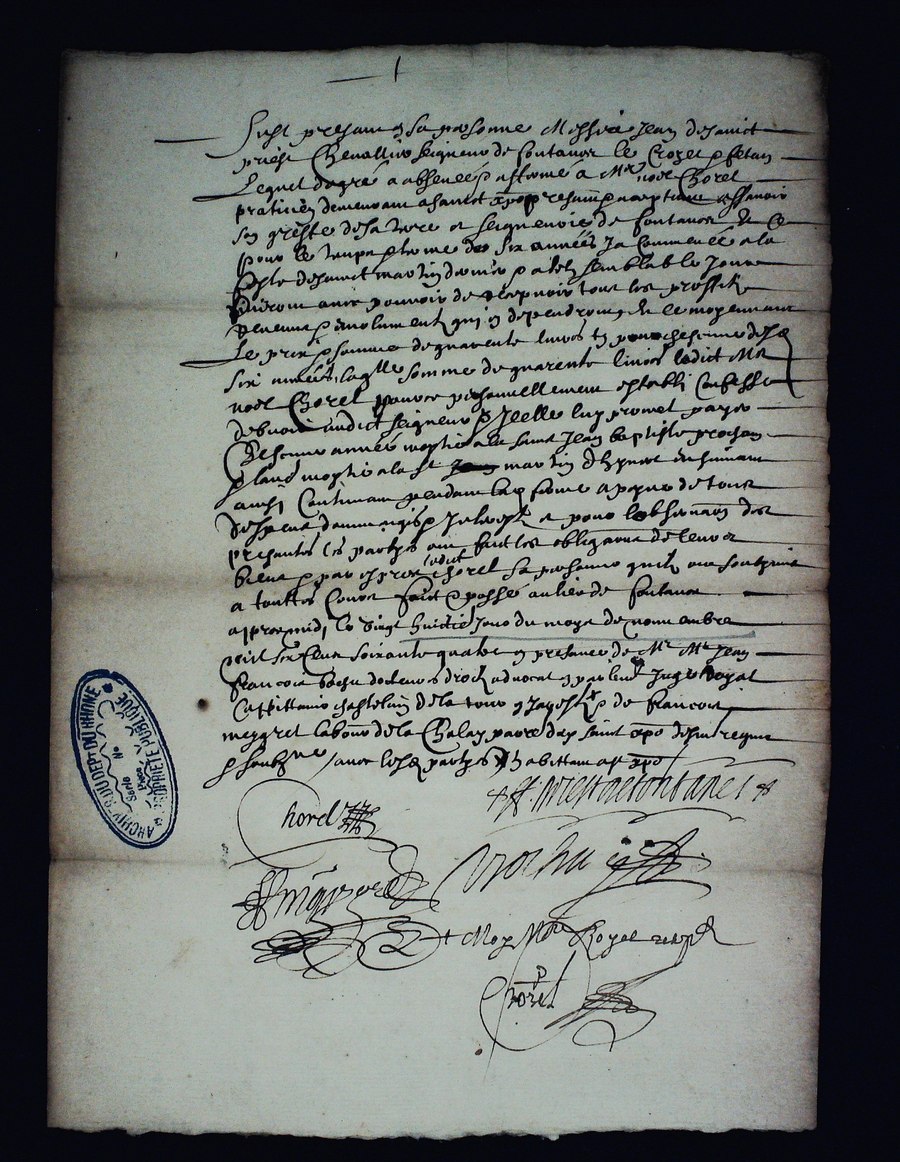 Fust presant en sa personne Messire Jean de sainct
priest Chevallier seigneur de fontanes le Crozet & fetan
Lequel de gré a abscencé & affermé à Mre noel Chorel
praticien demeurant a sainct xpo presant & acceptant assavoir
son greffe de sa terre et seigneurie de fontanes & ce
pour le temps & terme de six années Ja Commencé a la
feste de sainct martin dernier & a tel & semblable Jour
finiront avec pouvoir de percepvoir tous les proffitz
revenus & emolumentz qui en dependront & ce moyennant
Le prix & somme de quarente livres pour chescune desd
six années laqlle somme de quarente livres ledict Mre
noel Chorel personnellement establi Confesse
debvoir audict seigneur & Icelle luy promet payer
Chescune année moytié a la saint Jean baptiste prochain
& l'aultre moytié a la st martin d'hyvert en suivant
ainsi Continuant pendant lad ferme a peyne de tous
despens dommaiges & Interestz et pour l'observation des
presantes les partyes ont faict les obligations de leurs
biens & par expres ledict Chorel sa personne quil a soubzmis
a touttes Cours faict & passé au lieu de fontanes
appres midy le vingt huictie Jour du moys de novembre
mil six Cens soixante quatre en presance de Mre Mre Jean
francois docteur es droictz advocat en parlemt Juge Royal
Cappittaine chastelain de la tour en Jarestz & de francois
meygret laboureur de la Chalay parroisse dud saint xpo
& soubzne avec lesd partyes habittant a st xpo
Chorel
St. Priest de fontanes
Rochu
Meygret
Moy Mre Chorel
Chorel
ARCHIVES DU DEPT DU RHONE
PROPRIÉTÉ PUBLIQUE
Série
No